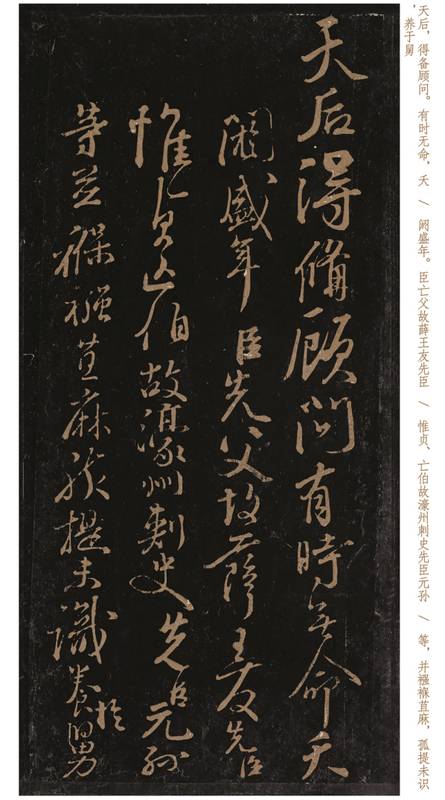 天后，得备顾问。有时无命，夭 / 阏盛年。臣亡父故薛王友先臣 / 惟贞、亡伯故濠州刺史先臣元孙 / 等，并襁褓苴麻，孤提未识
，养于舅
天后得備顧問有時無命夭
閼盛年臣先父故薛王友先臣
惟貞亡伯故濠州刺史先臣元孫
等並褓襁苴麻孤提未識養於舅